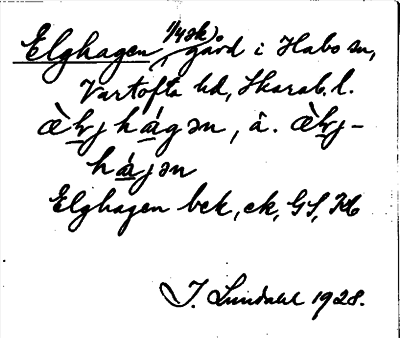 Elghagen, 1/4 sk).
gård i Habo sn,
Vartofta hd, Skarab. l.
hágən, å.
hájən
Elghagen bek, ek, GS,
J. Lundahl 1928.